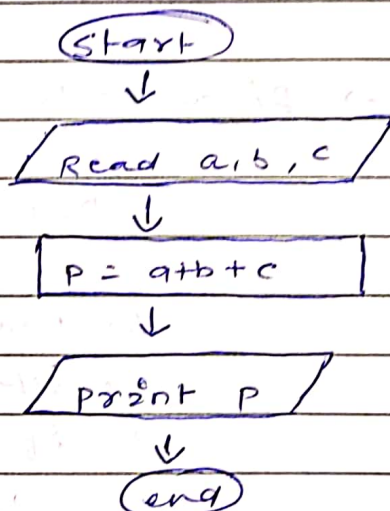 Start
Read a, b, c
P = a+b+c
print P
end